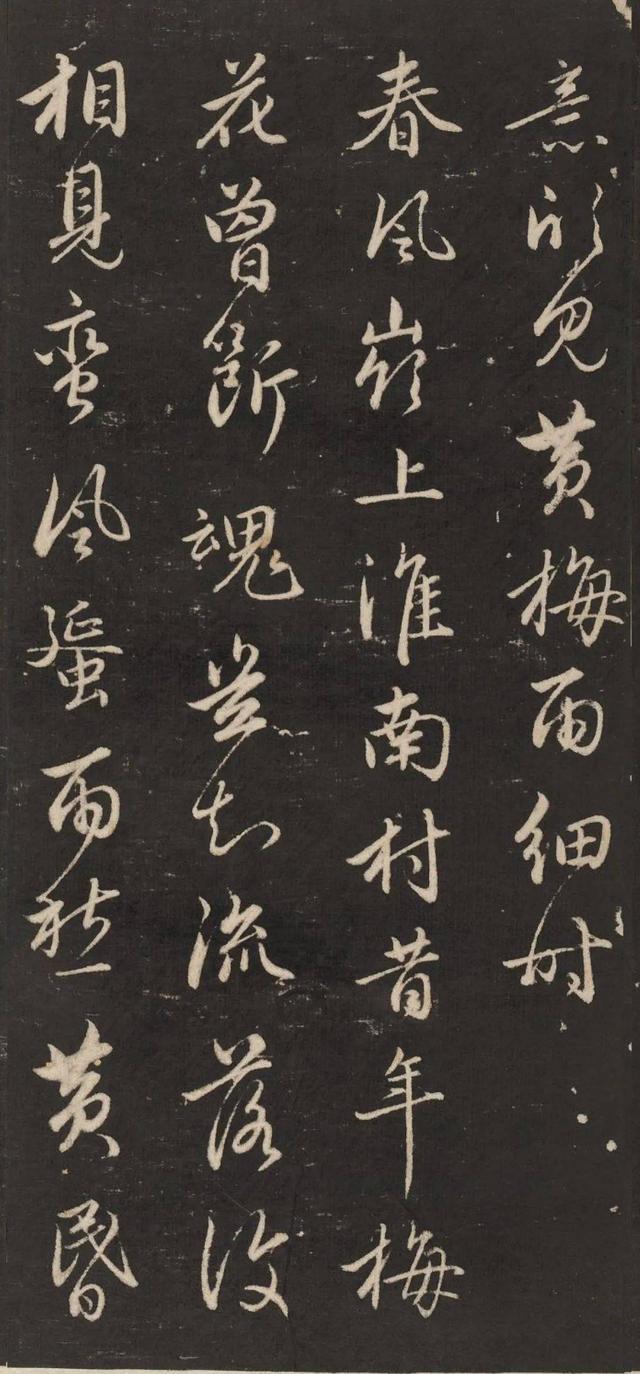 黃梅雨細時
春風嶺上淮南村昔年梅
花曾斷魂豈知流落復
相見蠻風蜑雨愁黃昬